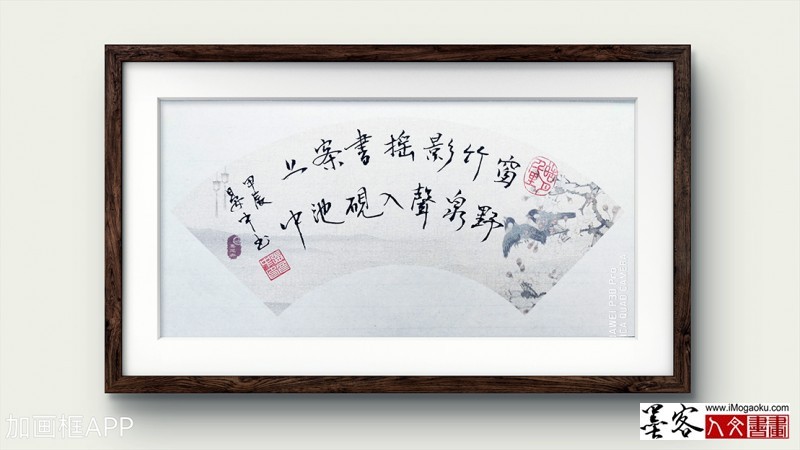 窗竹影摇書案上
野泉聲入硯池中
甲辰
中书
AWEI P30 Pro
CA QUAD CAMERA
加画框APP
墨客
www.iMogaoku.com
人文書畫